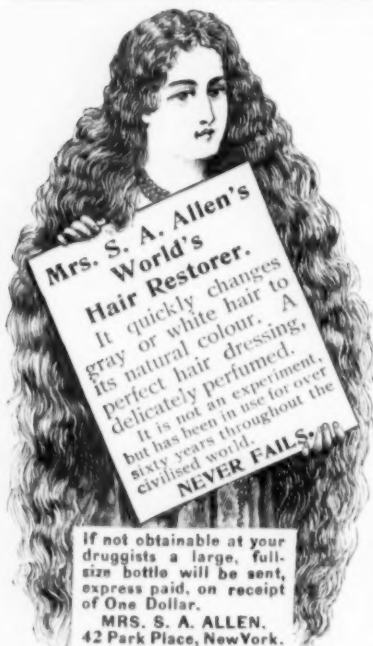 Mrs. S. A. Allen's
World's
Hair Restorer.
It quickly changes
gray or white hair to
its natural colour. A
perfect hair dressing,
delicately perfumed.
It is not an experiment,
but has been in use for over
sixty years throughout the
civilised world.
NEVER FAILS.
If not obtainable at your
druggists a large, full-
size bottle will be sent,
express paid, on receipt
of One Dollar.
MRS. S. A. ALLEN,
42 Park Place, New York.